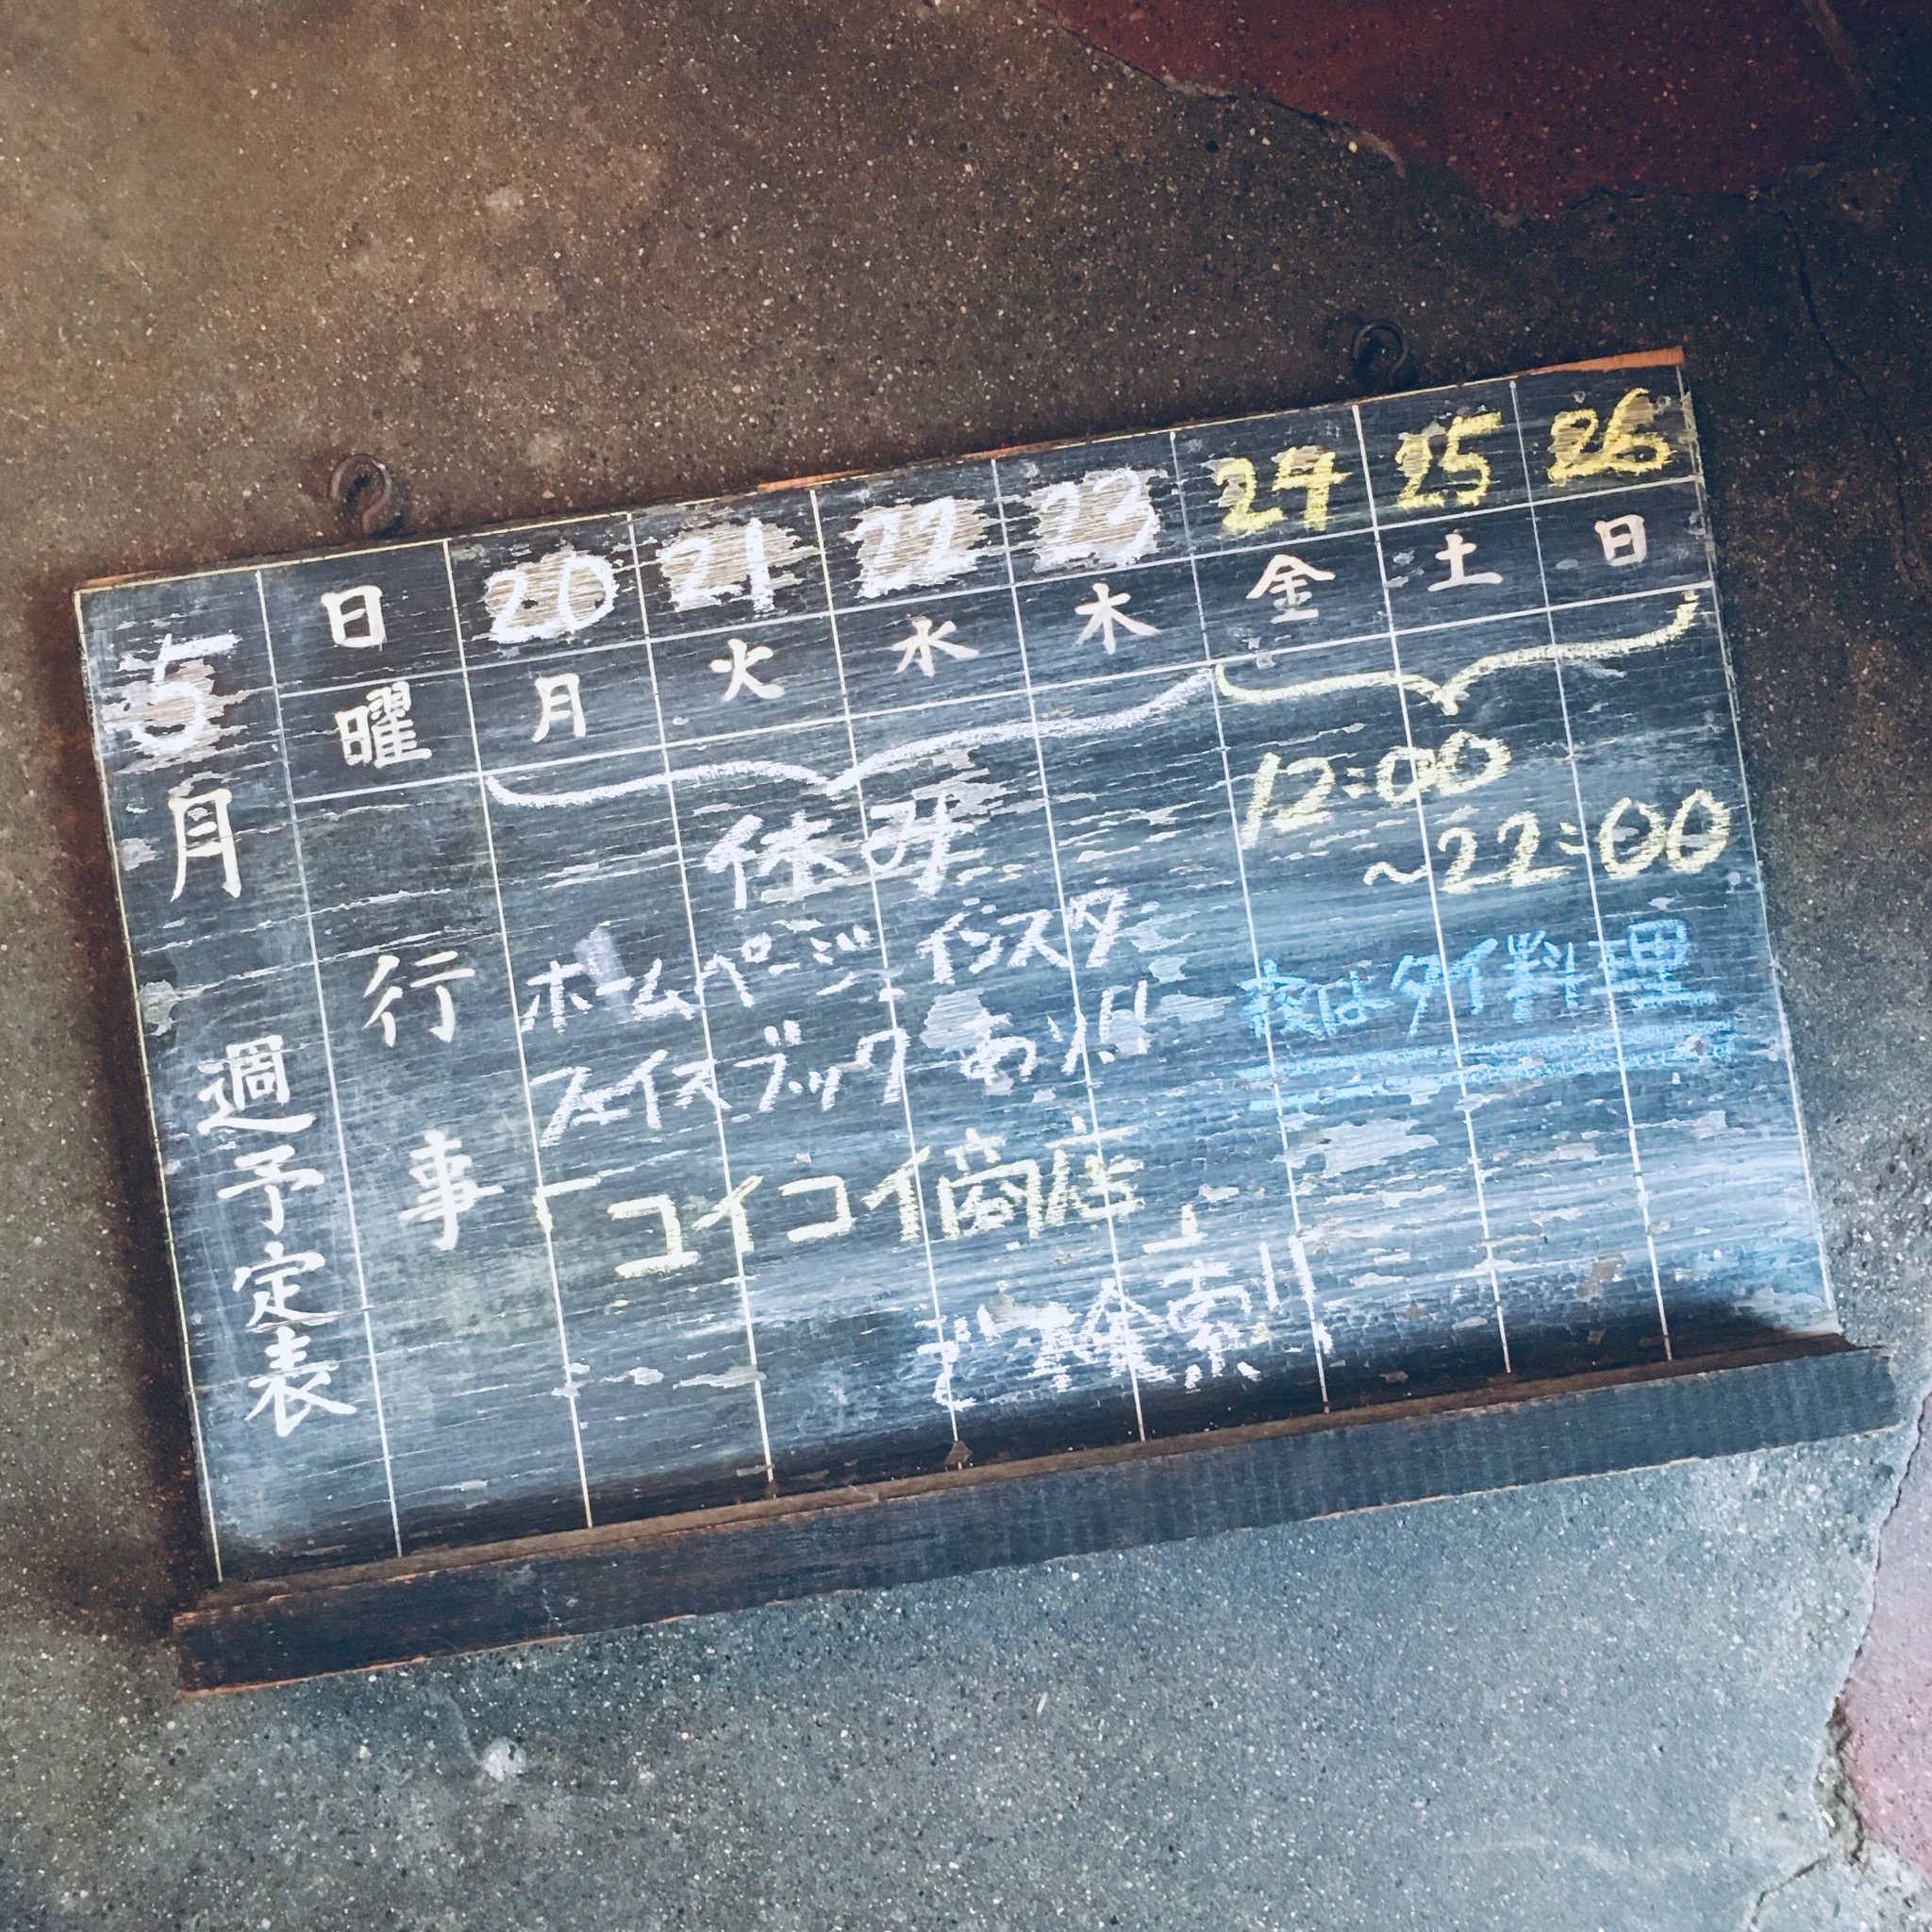 5月 週予定表
日 20 21 22 23 24 25 26
曜 月 火 水 木 金 土 日
行事
休み
ホームページ、インスタ
フェイスブックあり!!
「コイコイ商店」
で検索!!
12:00
~22:00
夜はタイ料理